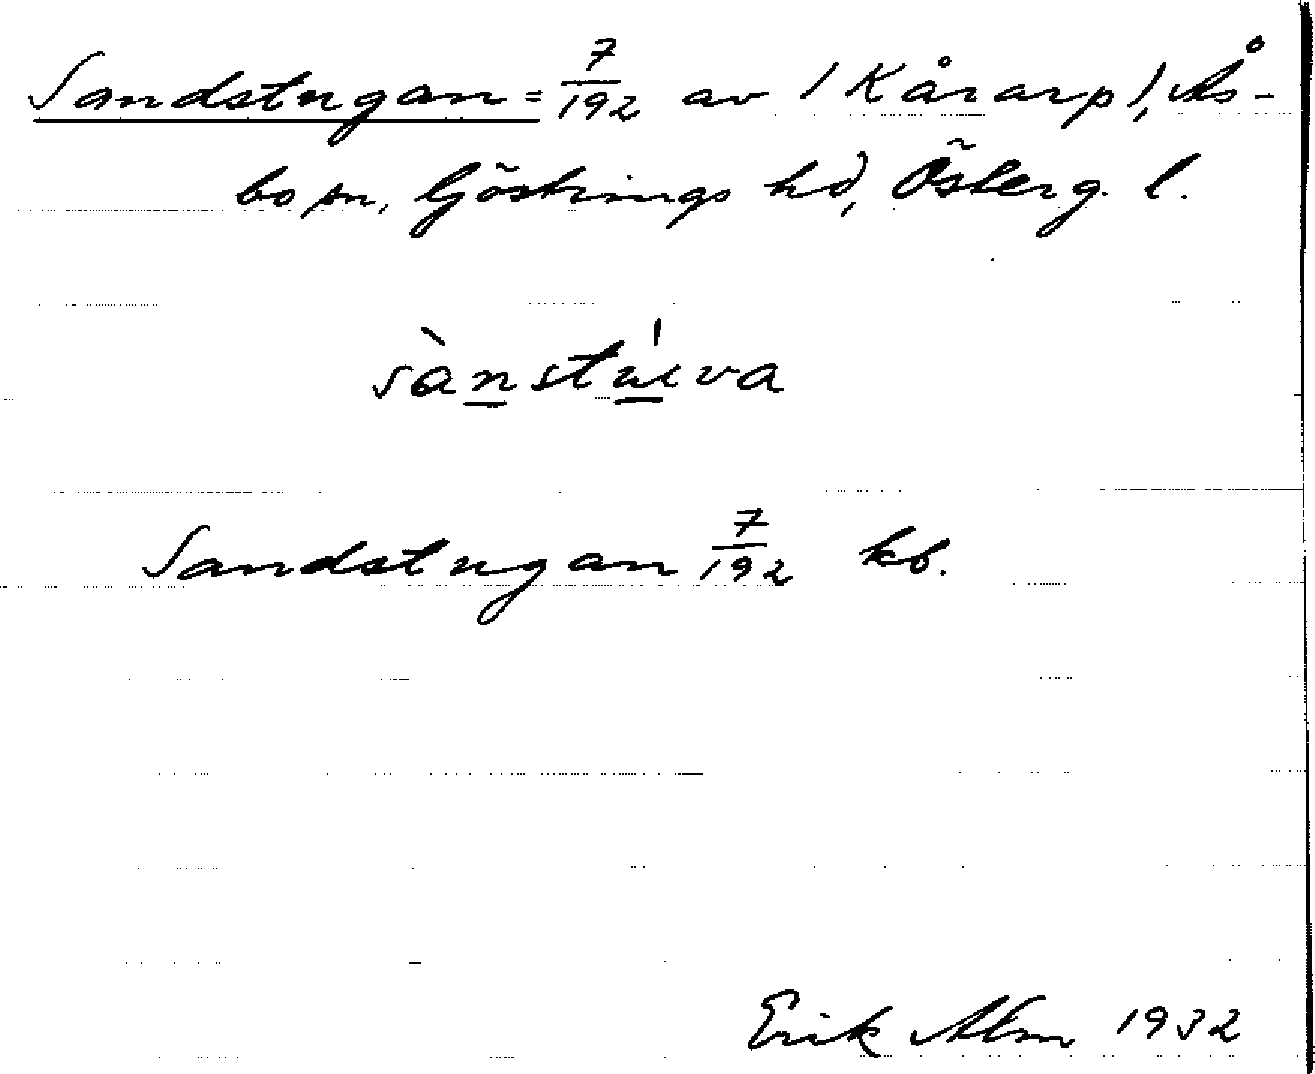 Sandstugan = 7/192 av (Kårarp), Ås-
bo sn, Göstrings hd, Österg. l.
sànstúeva
Sandstugan 7/192 kb.
Erik Alm 1932